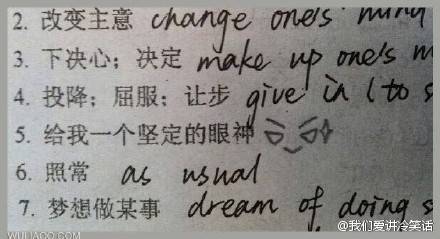 2. 改变主意 change one's mind
3. 下决心；决定 make up one's m
4. 投降；屈服；让步 give in (to s
5. 给我一个坚定的眼神
6. 照常 as usual
7. 梦想做某事 dream of doing s
@我们爱讲冷笑话